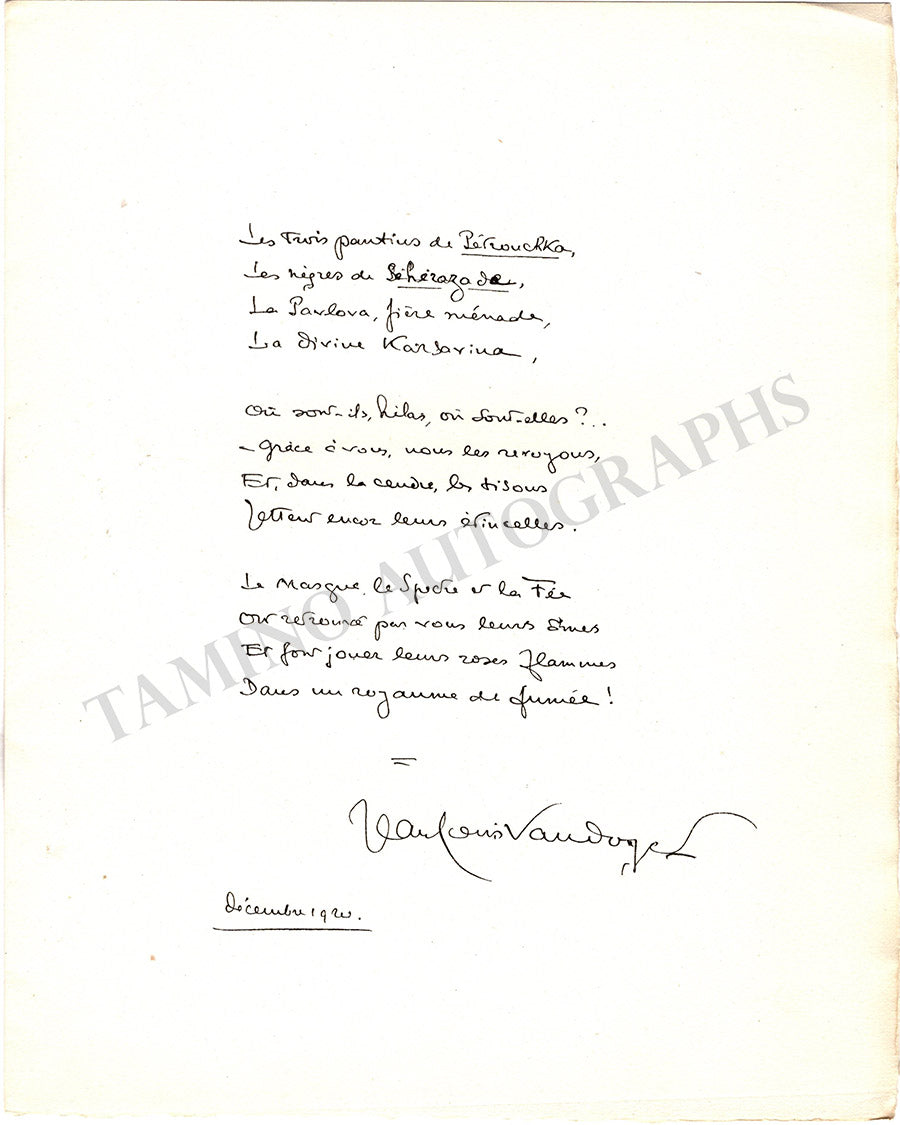 Les trois pantins de Pétrouchka,
Les nègres de Shéhérazade,
La Pavlova, fière ménade,
La divine Karsavina,
Où sont-ils, hélas, où sont-elles ?..
- Grâce à vous, nous les revoyons,
Et, dans la cendre, les tisons
Jettent encor leurs étincelles.
Le Masque, le Spectre et la Fée
Ont retrouvé par vous leurs âmes
Et font jouer leurs roses flammes
Dans un royaume de fumée !
Jean Louis Vaudoyer
décembre 1920.
TAMINO AUTOGRAPHS